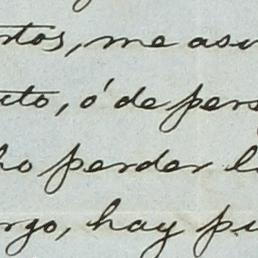 rtos, me asi
uto, ó de pers
ho perder l
rgo, hay pu